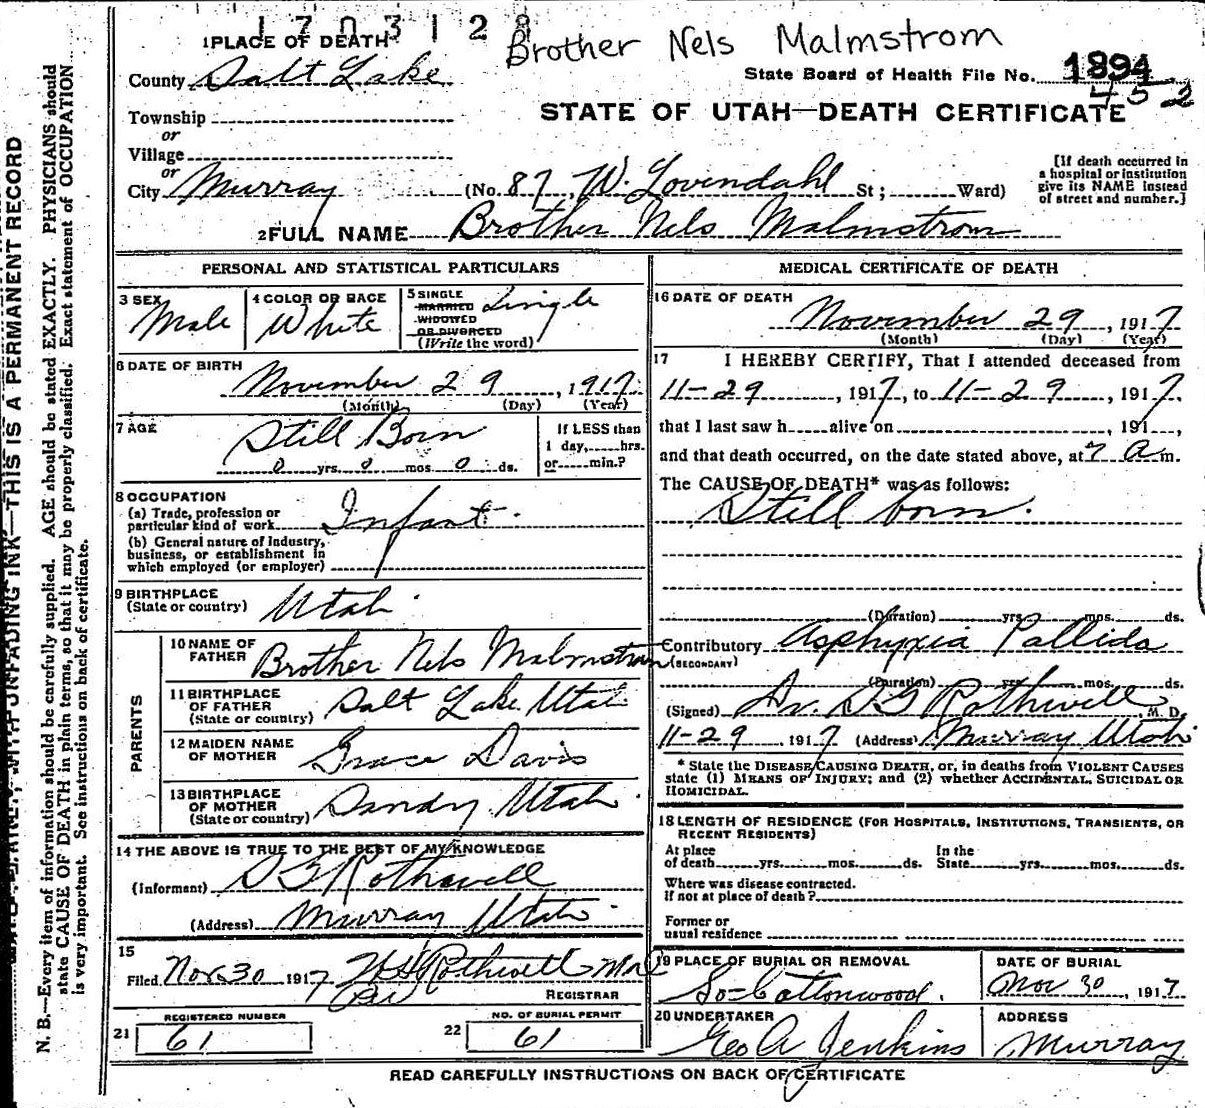 1703128
Brother Nels Malmstrom
1 PLACE OF DEATH
County Salt Lake
State Board of Health File No. 1894
452
STATE OF UTAH—DEATH CERTIFICATE
Township
or
Village
or
City Murray (No. 87, W. Lovendahl St; Ward)
[If death occurred in
a hospital or institution
give its NAME instead
of street and number.]
2 FULL NAME Brother Nels Malmstrom
PERSONAL AND STATISTICAL PARTICULARS
3 SEX
Male
4 COLOR OR RACE
White
5 SINGLE
MARRIED
WIDOWED
OR DIVORCED
(Write the word)
Single
6 DATE OF BIRTH
November 29, 1917.
(Month) (Day) (Year)
7 AGE
Still Born
0 yrs. 0 mos. 0 ds.
If LESS than
1 day, hrs.
or min.?
8 OCCUPATION
(a) Trade, profession or
particular kind of work Infant.
(b) General nature of industry,
business, or establishment in
which employed (or employer)
9 BIRTHPLACE
(State or country) Utah.
PARENTS
10 NAME OF
FATHER Brother Nels Malmstrom
11 BIRTHPLACE
OF FATHER
(State or country) Salt Lake Utah
12 MAIDEN NAME
OF MOTHER Grace Davis
13 BIRTHPLACE
OF MOTHER
(State or country) Sandy Utah.
14 THE ABOVE IS TRUE TO THE BEST OF MY KNOWLEDGE
(Informant) D G Rothwell
(Address) Murray Utah.
15
Filed Nov 30 1917 Rothwell
REGISTRAR
21 REGISTERED NUMBER
61
22 NO. OF BURIAL PERMIT
61
MEDICAL CERTIFICATE OF DEATH
16 DATE OF DEATH
November 29, 1917
(Month) (Day) (Year)
17 I HEREBY CERTIFY, That I attended deceased from
11-29, 1917, to 11-29, 1917.
that I last saw h alive on , 191 ,
and that death occurred, on the date stated above, at 7 A m.
The CAUSE OF DEATH* was as follows:
Still born.
(Duration) yrs. mos. ds.
Contributory Asphyxia Pallida
(SECONDARY)
(Duration) yrs. mos. ds.
(Signed) Dr. D G Rothwell M. D.
11-29, 1917 (Address) Murray Utah.
* State the DISEASE CAUSING DEATH, or, in deaths from VIOLENT CAUSES
state (1) MEANS OF INJURY; and (2) whether ACCIDENTAL, SUICIDAL OR
HOMICIDAL.
18 LENGTH OF RESIDENCE (FOR HOSPITALS, INSTITUTIONS, TRANSIENTS, OR
RECENT RESIDENTS)
At place
of death yrs. mos. ds.
In the
State yrs. mos. ds.
Where was disease contracted.
If not at place of death?
Former or
usual residence
19 PLACE OF BURIAL OR REMOVAL
So-Cottonwood.
DATE OF BURIAL
Nov 30, 1917
20 UNDERTAKER
Geo A Jenkins
ADDRESS
Murray
READ CAREFULLY INSTRUCTIONS ON BACK OF CERTIFICATE
WITH UNFADING INK—THIS IS A PERMANENT RECORD
N. B.—Every item of information should be carefully supplied. AGE should be stated EXACTLY. PHYSICIANS should
state CAUSE OF DEATH in plain terms, so that it may be properly classified. Exact statement of OCCUPATION
is very important. See instructions on back of certificate.